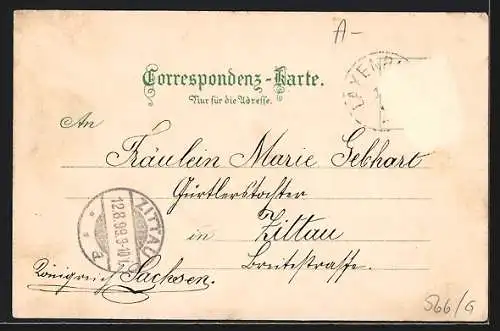 A-
Correspondenz-Karte.
Nur für die Adresse.
An
Fräulein Marie Gebhart
Gürtlerstochter
in Zittau
Breitestrasse.
Königreich Sachsen.
ZITTAU
12.8.99.9-10
566/G